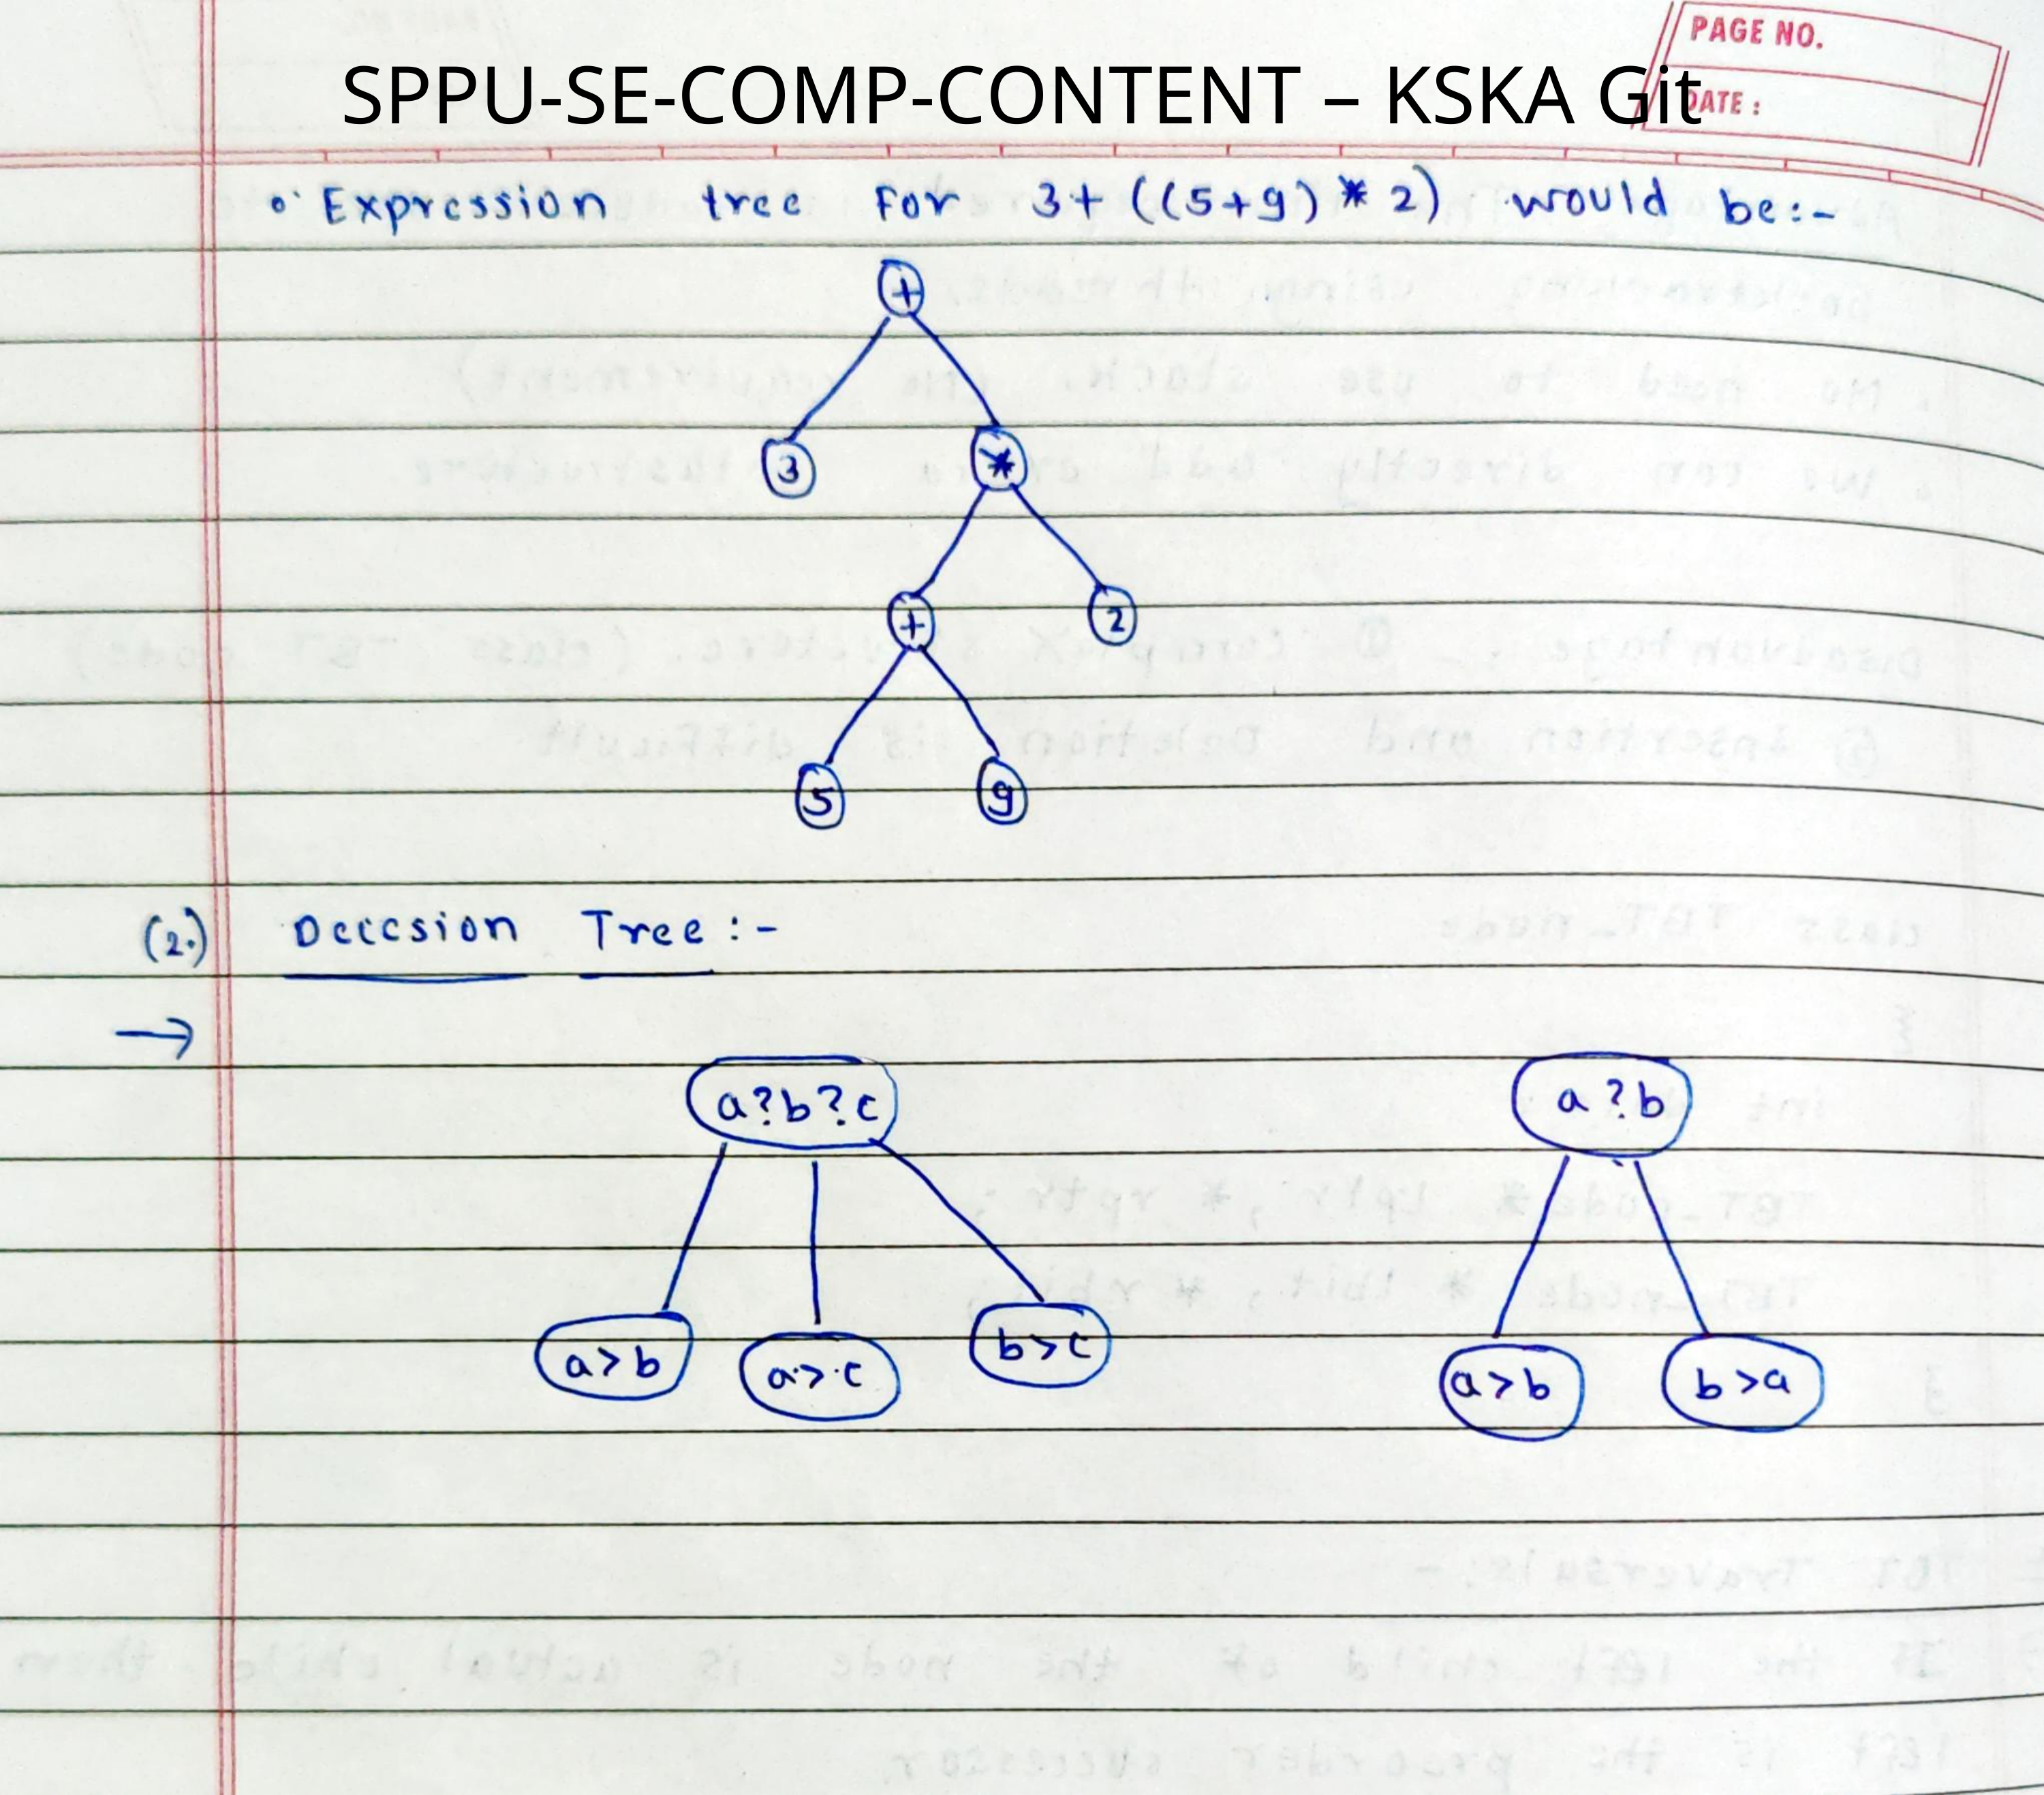 PAGE NO.
SPPU-SE-COMP-CONTENT – KSKA Git
DATE :
• Expression tree for 3+ ((5+9) * 2) would be:-
+
3 *
+ 2
5 9
(2.) Deccsion Tree :-
→
a?b?c a?b
a>b a>c b>c a>b b>a